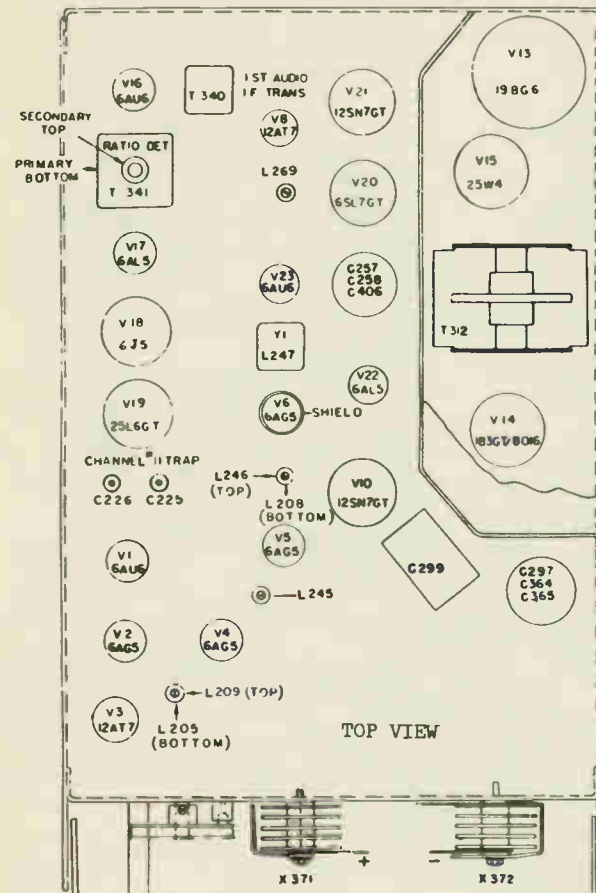 V13
19BG6
V16
6AU6
T 340
1ST AUDIO
I F TRANS
V21
12SN7GT
V8
12AT7
SECONDARY
TOP
PRIMARY
BOTTOM
RATIO DET
T 341
L269
V20
6SL7GT
V15
25W4
V17
6AL5
V23
6AU6
C257
C258
C406
V18
6J5
Y1
L247
T312
V22
6AL5
V19
25L6GT
V6
6AG5
SHIELD
V14
1B3GT/8016
CHANNEL #11 TRAP
C226
C225
L246
(TOP)
L208
(BOTTOM)
V10
12SN7GT
V5
6AG5
V1
6AU6
C299
C297
C364
C365
L245
V2
6AG5
V4
6AG5
L209 (TOP)
V3
12AT7
L205
(BOTTOM)
TOP VIEW
+
-
X371
X372